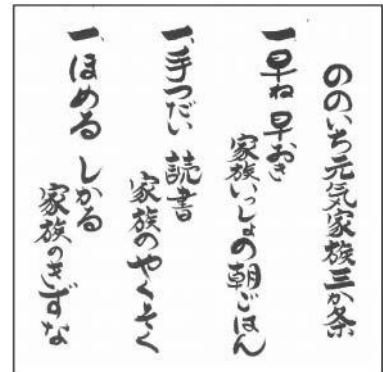 ののいち元気家族三か条
一、早ね 早おき
家族いっしょの朝ごはん
一、手つだい 読書
家族のやくそく
一、ほめる しかる
家族のきずな